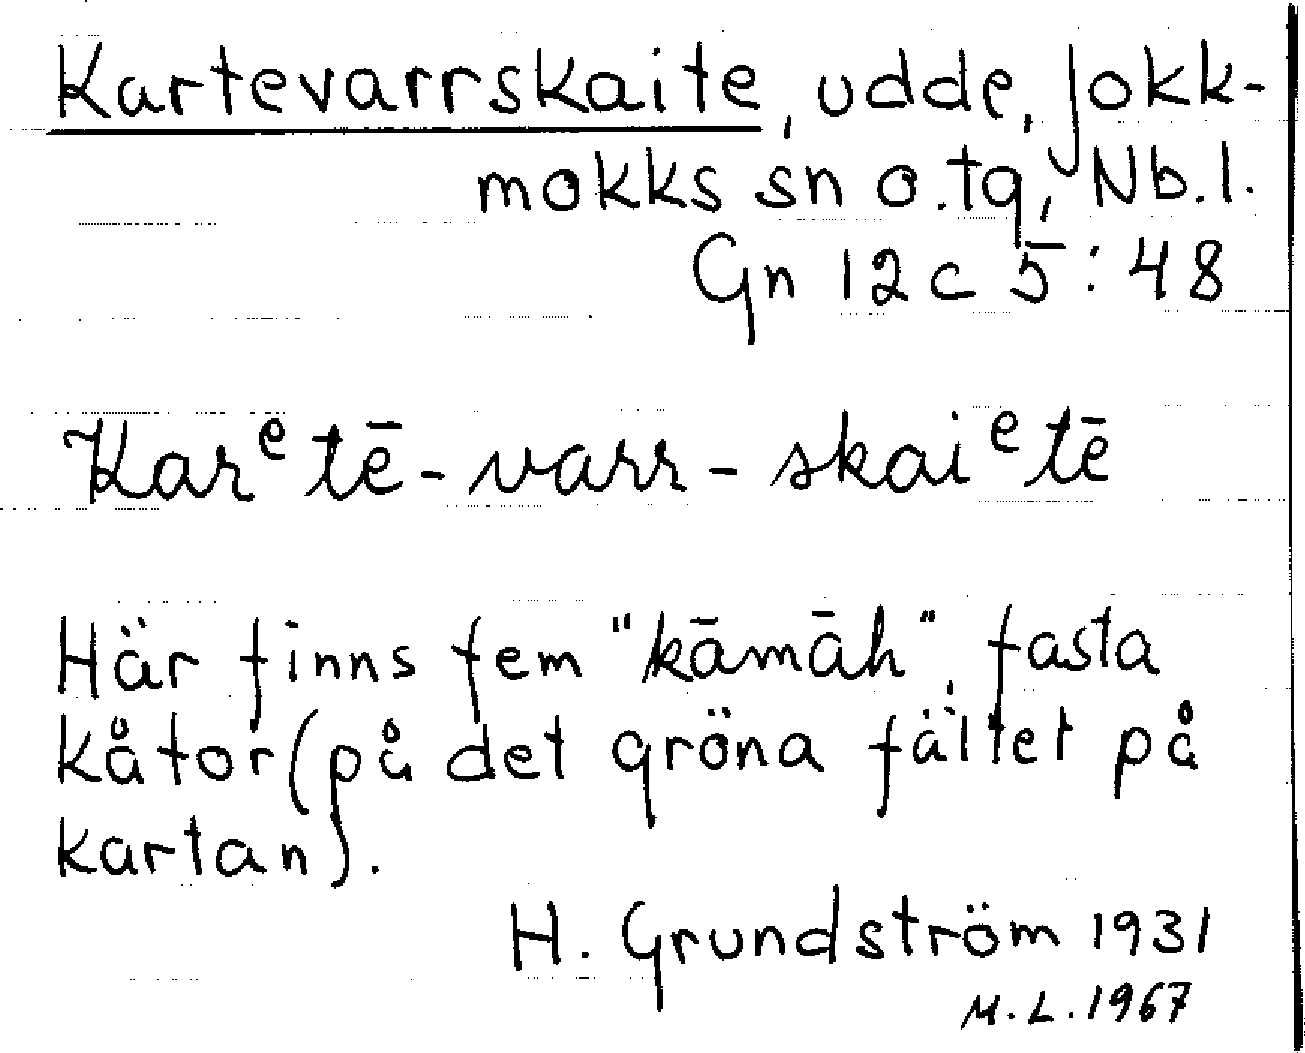 Kartevarrskaite, udde, Jokk-
mokks sn o. tg, Nb. l.
Gn 12 c 5 : 48
Karᵉtē-varr-skaiᵉtē
Här finns fem "kāmāh", fasta
kåtor (på det gröna fältet på
kartan).
H. Grundström 1931
M. L. 1967